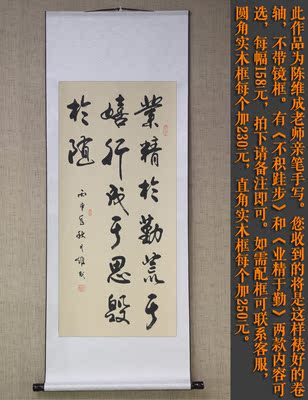 此作品为陈维成老师亲笔手写。您收到的将是这样裱好的卷
轴，不带镜框。有《不积跬步》和《业精于勤》两款内容可
选，每幅158元，拍下请备注即可。如需配框可联系客服，
圆角实木框每个加230元，直角实木框每个加250元。
業精於勤荒于
嬉行成于思毀
於随
丙申年秋月維成